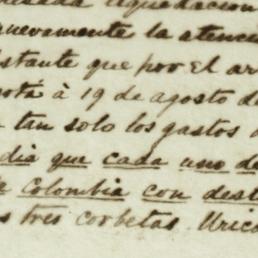 liquidacion
nuevamente la atenc
stante que por el ar
otá á 19 de agosto de
tan solo los gastos
dia que cada uno de
e Colombia con dest
s tres corbetas. Urica